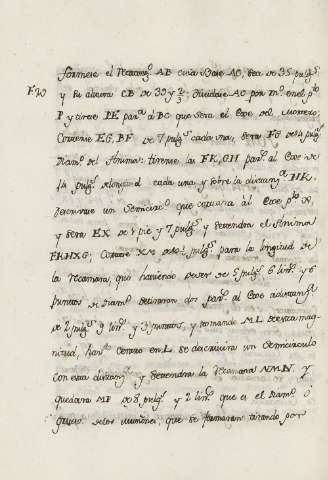 formese el Rectang.º AB cuia Base AC, sea de 35 pulg.s
F 20
y su altura CB de 30 y 2/3. dividase AC por m.º en el p.to
P y tirese PE par.a á BC que sera el Exe del Mortero;
Cortense EG, BF de 7 pulg.s cada una, sera FG de 14 pulg.s
Diam.o del Animar: tirense las FK, GH par.s al Exe de
14 pulg.s de longitud cada una y sobre la distanz.a HK
descrivase un Semicirc.o que cortara al Exe p.to X,
y sera EX de 1 pie y 7 pulg.s y se tendra el Anima
FKHXG; Cortese XM de pulg.s para la longitud de
la Recamara, que haviendo de ser de 5 pulg.s 6 lin.s y 6
puntos de Diam.o se tiraran dos par.s al Exe a distanz.a
de 2 pulg.s 9 lin.s y 3 puntos, y tomando ML de esta mag-
nitud, haz.do Centro en L se descrivira un Semicirculo
con esta distanz.a y se tendra la Recamara NMN. Y
quedara MP de 8 pulg.s y 2 lin.s que es el Diam.o ó
grueso de los muñones, que se formaran tirando por